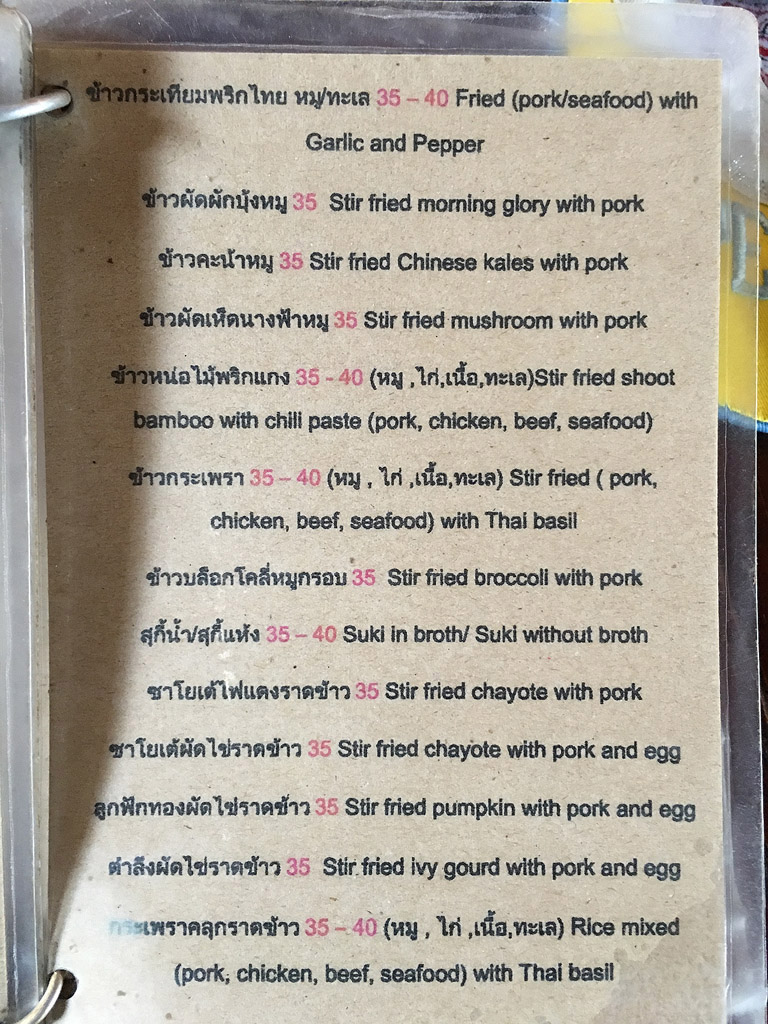 ข้าวกระเทียมพริกไทย หมู/ทะเล 35 – 40 Fried (pork/seafood) with
Garlic and Pepper
ข้าวผัดผักบุ้งหมู 35 Stir fried morning glory with pork
ข้าวคะน้าหมู 35 Stir fried Chinese kales with pork
ข้าวผัดเห็ดนางฟ้าหมู 35 Stir fried mushroom with pork
ข้าวหน่อไม้พริกแกง 35 - 40 (หมู ,ไก่,เนื้อ,ทะเล)Stir fried shoot
bamboo with chili paste (pork, chicken, beef, seafood)
ข้าวกระเพรา 35 – 40 (หมู , ไก่ ,เนื้อ,ทะเล) Stir fried ( pork,
chicken, beef, seafood) with Thai basil
ข้าวบล็อกโคลี่หมูกรอบ 35 Stir fried broccoli with pork
สุกี้น้ำ/สุกี้แห้ง 35 – 40 Suki in broth/ Suki without broth
ซาโยเต้ไฟแดงราดข้าว 35 Stir fried chayote with pork
ซาโยเต้ผัดไข่ราดข้าว 35 Stir fried chayote with pork and egg
ลูกฟักทองผัดไข่ราดข้าว 35 Stir fried pumpkin with pork and egg
ตำลึงผัดไข่ราดข้าว 35 Stir fried ivy gourd with pork and egg
กระเพราคลุกราดข้าว 35 – 40 (หมู , ไก่ ,เนื้อ,ทะเล) Rice mixed
(pork, chicken, beef, seafood) with Thai basil